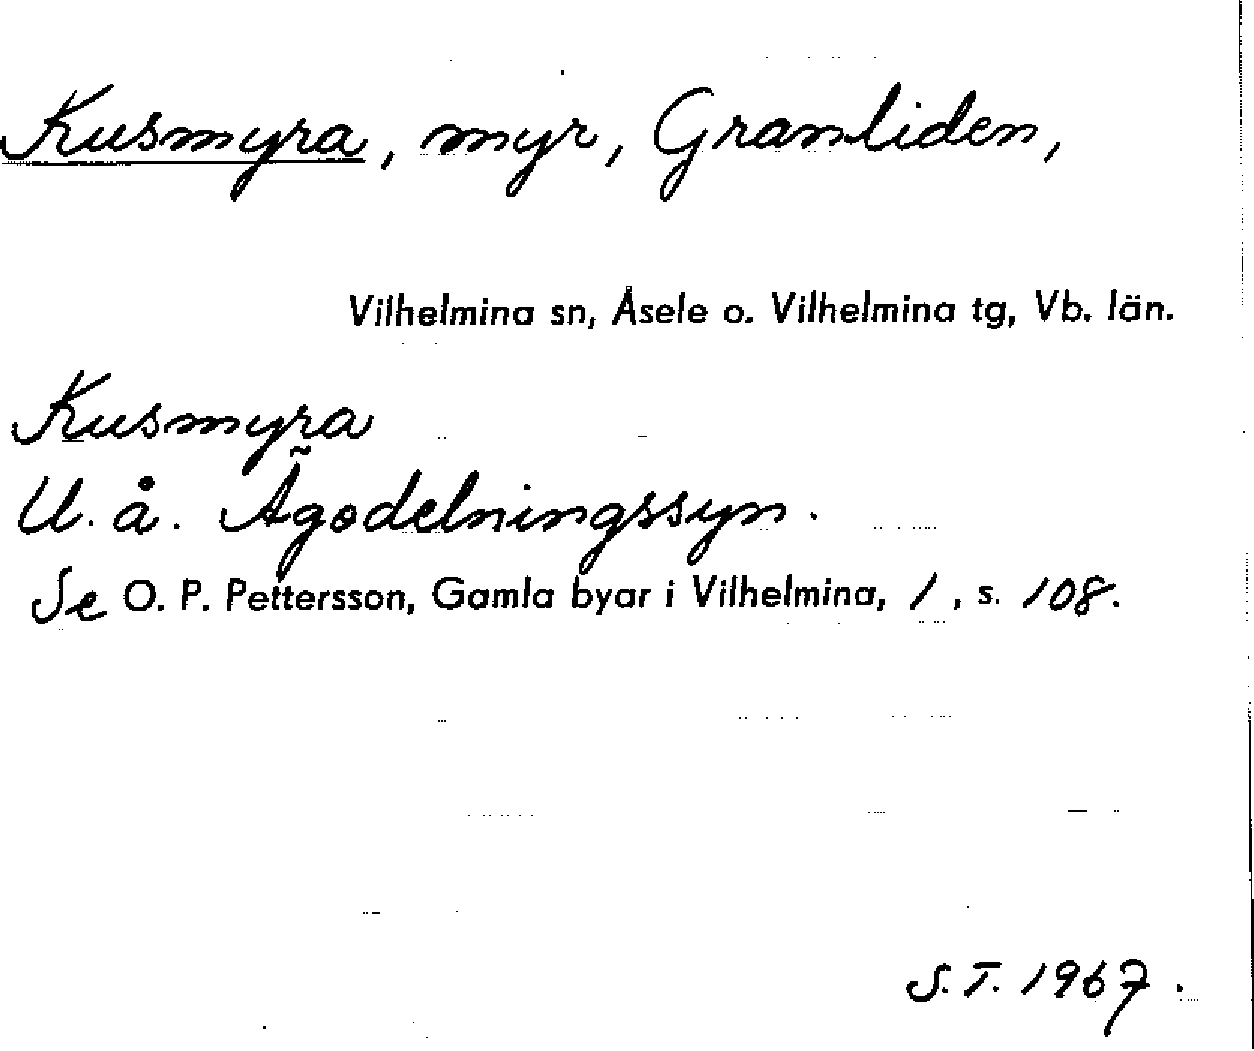 Kusmyra, myr, Granliden,
Vilhelmina sn, Åsele o. Vilhelmina tg, Vb. län.
Kusmyra
U. å. Ägodelningssyn.
Se O. P. Pettersson, Gamla byar i Vilhelmina, 1, s. 108.
S.T. 1967.